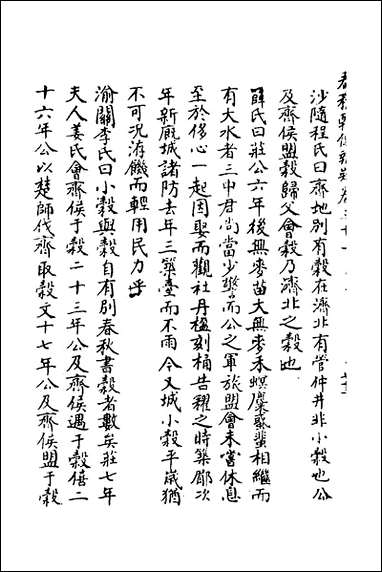 沙隨程氏曰齊地別有穀在濟北有管仲井非小穀也公
及齊侯盟穀歸父會穀乃濟北之穀也
薛氏曰莊公六年後無麥苗大無麥禾螟麋蜮蜚相繼而
有大水者三中君尚當少警而公之軍旅盟會未嘗休息
至於侈心一起因娶而觀社丹楹刻桷告糴之時築郿次
年新厩城諸防去年三築臺而不雨今又城小穀平嵗猶
不可況洊饑而輕用民力乎
渝關李氏曰小穀與穀自有別春秋書穀者數矣莊七年
夫人姜氏會齊侯于穀二十三年公及齊侯遇于穀僖二
十六年公以楚師伐齊取穀文十七年公及齊侯盟于穀